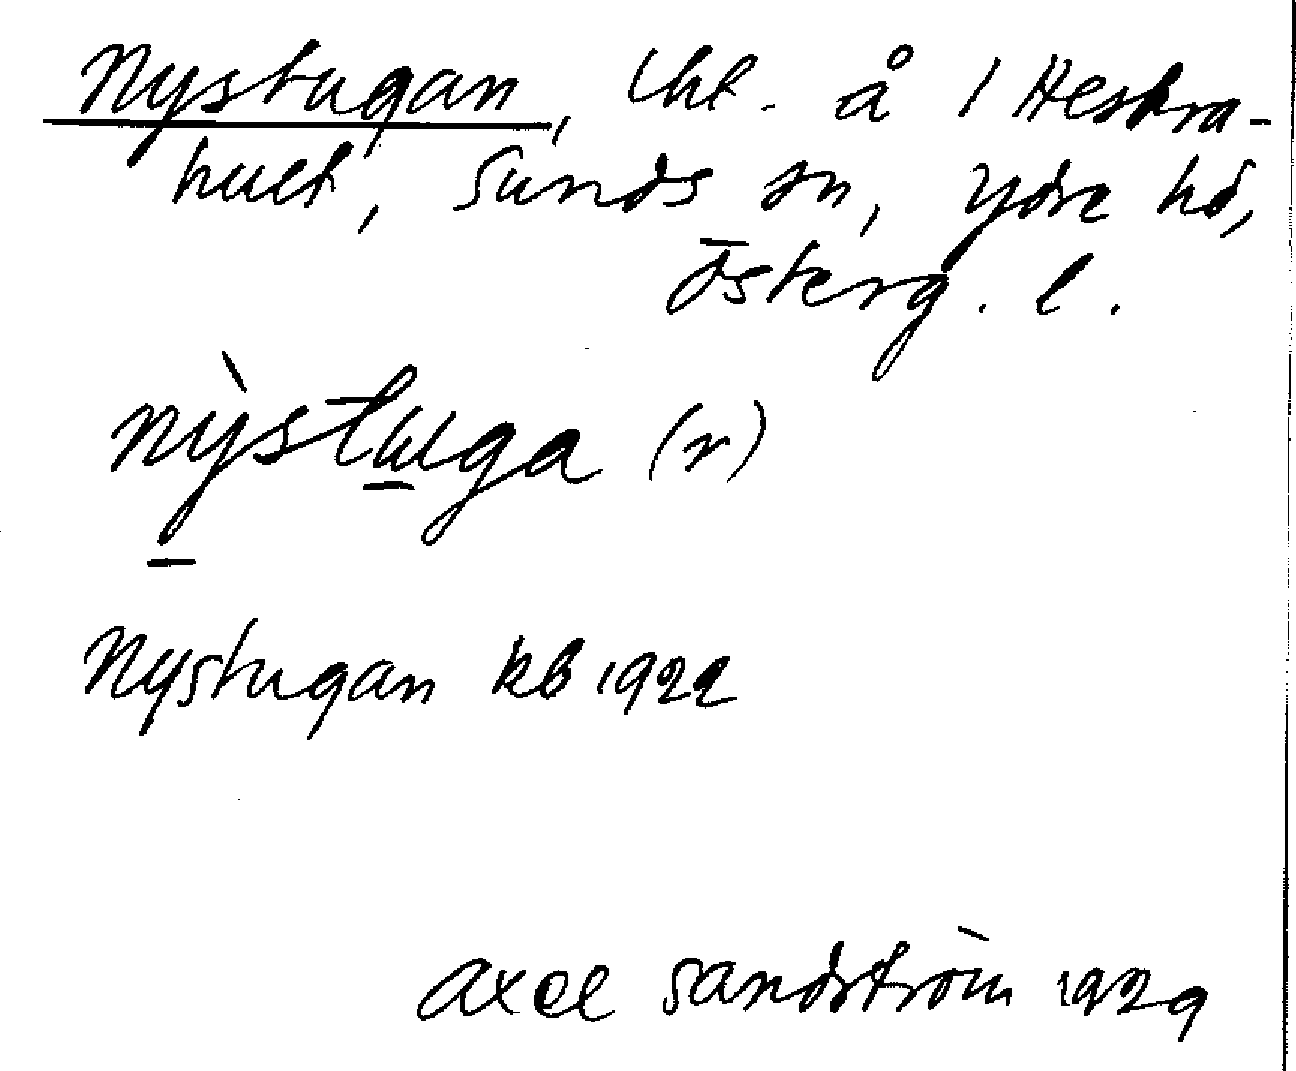 Nystugan, lht. å 1 Hestra-
hult, Sunds sn, Ydre hd,
Österg. l.
nỳstuga (r)
Nystugan kb 1922
Axel Sandström 1929